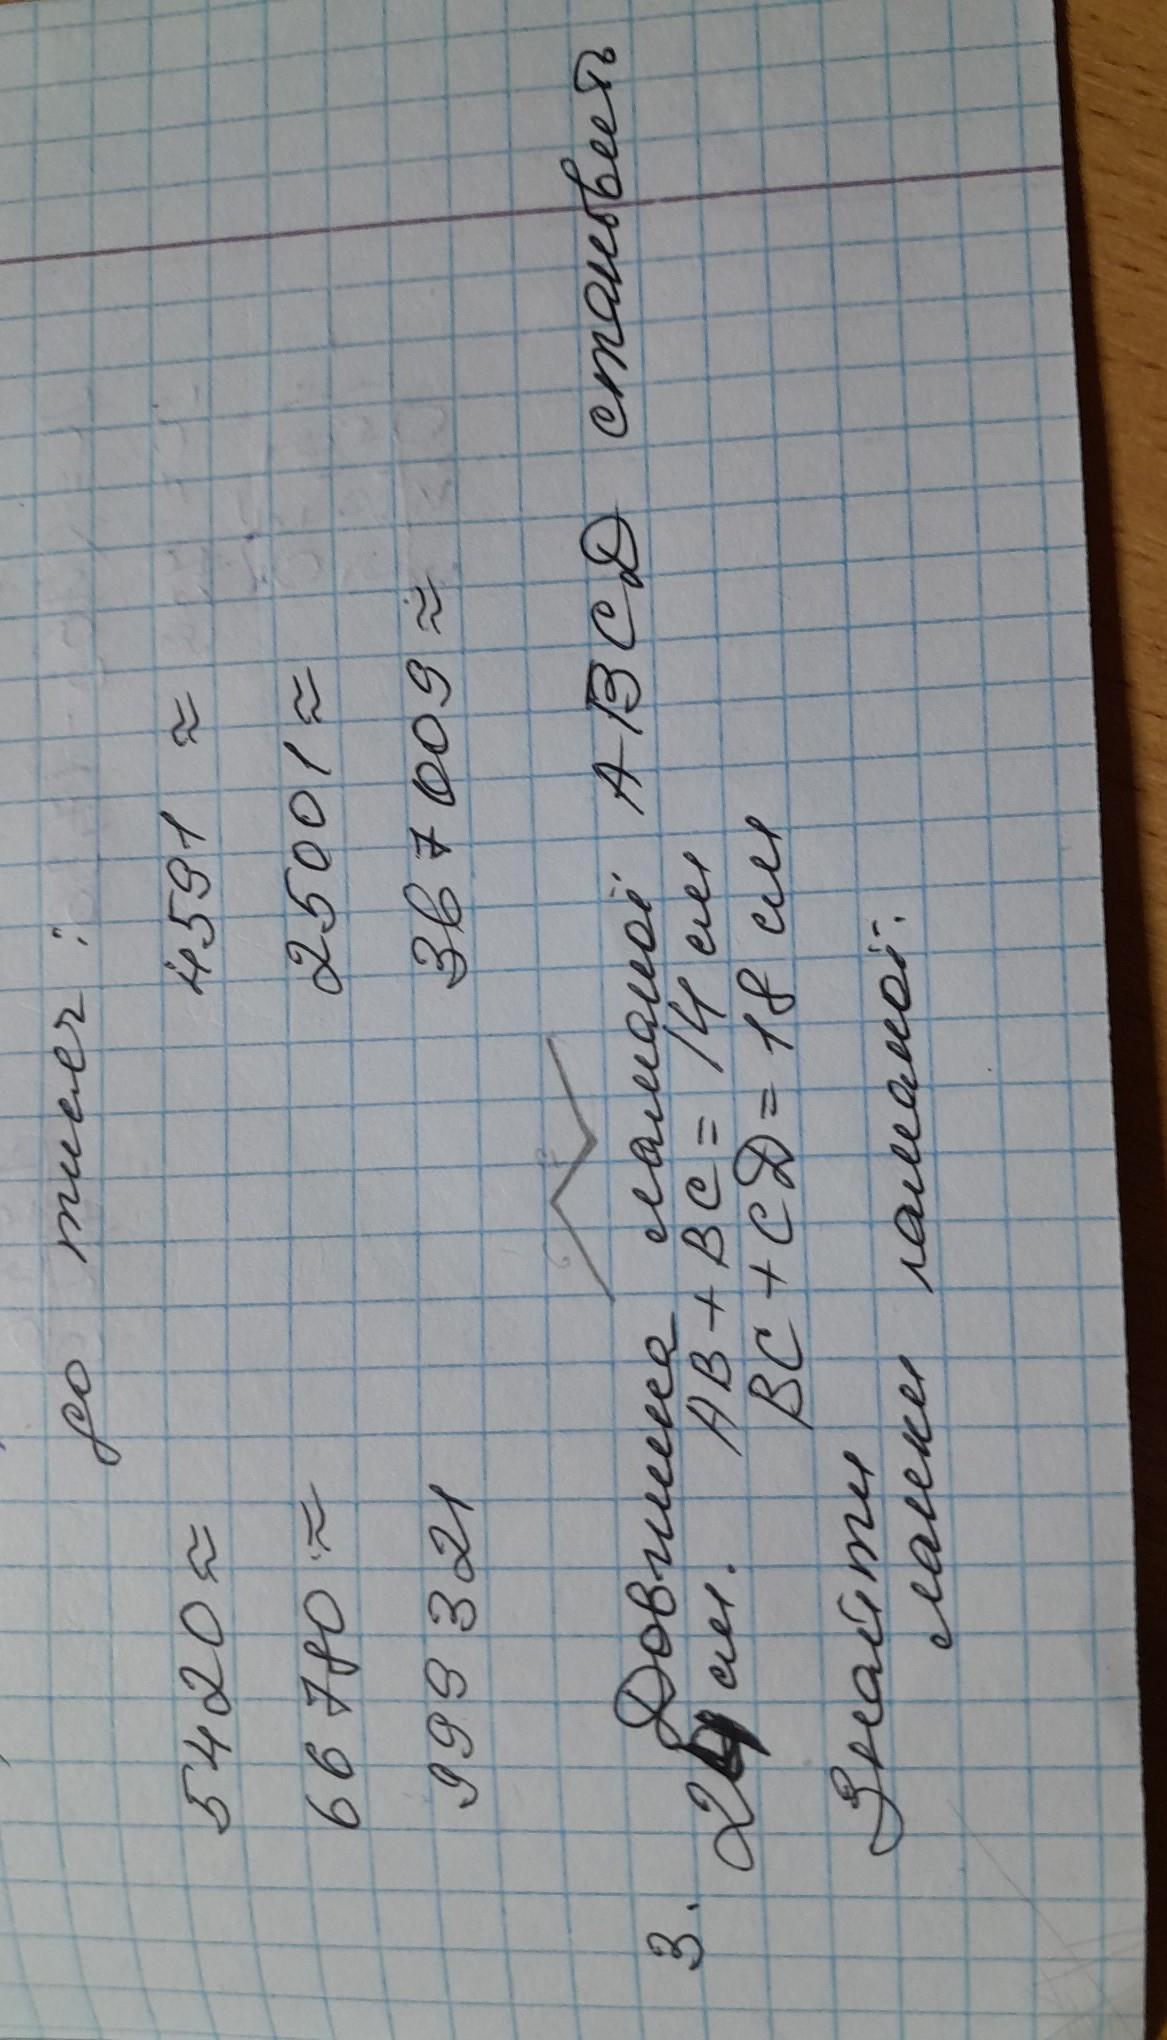 до тисеч:
5420≈ 4591 ≈
66780≈ 25001≈
999321 367009≈
3. Довжина ламаної АВСД становить
24 см. АВ+ВС= 14 см
ВС+СД=18 см
Знайти
ланки ламаної.